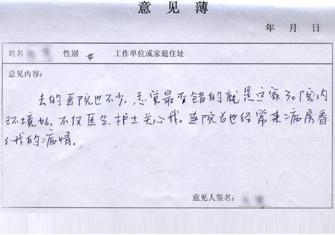 意见薄
年 月 日
姓名 性别 女 工作单位或家庭住址
意见内容:
去的医院也不少,感觉最不错的就是这家了。院内
环境好,不仅医生、护士关心我,连院长也经常来病房看
我的病情。
意见人签名: